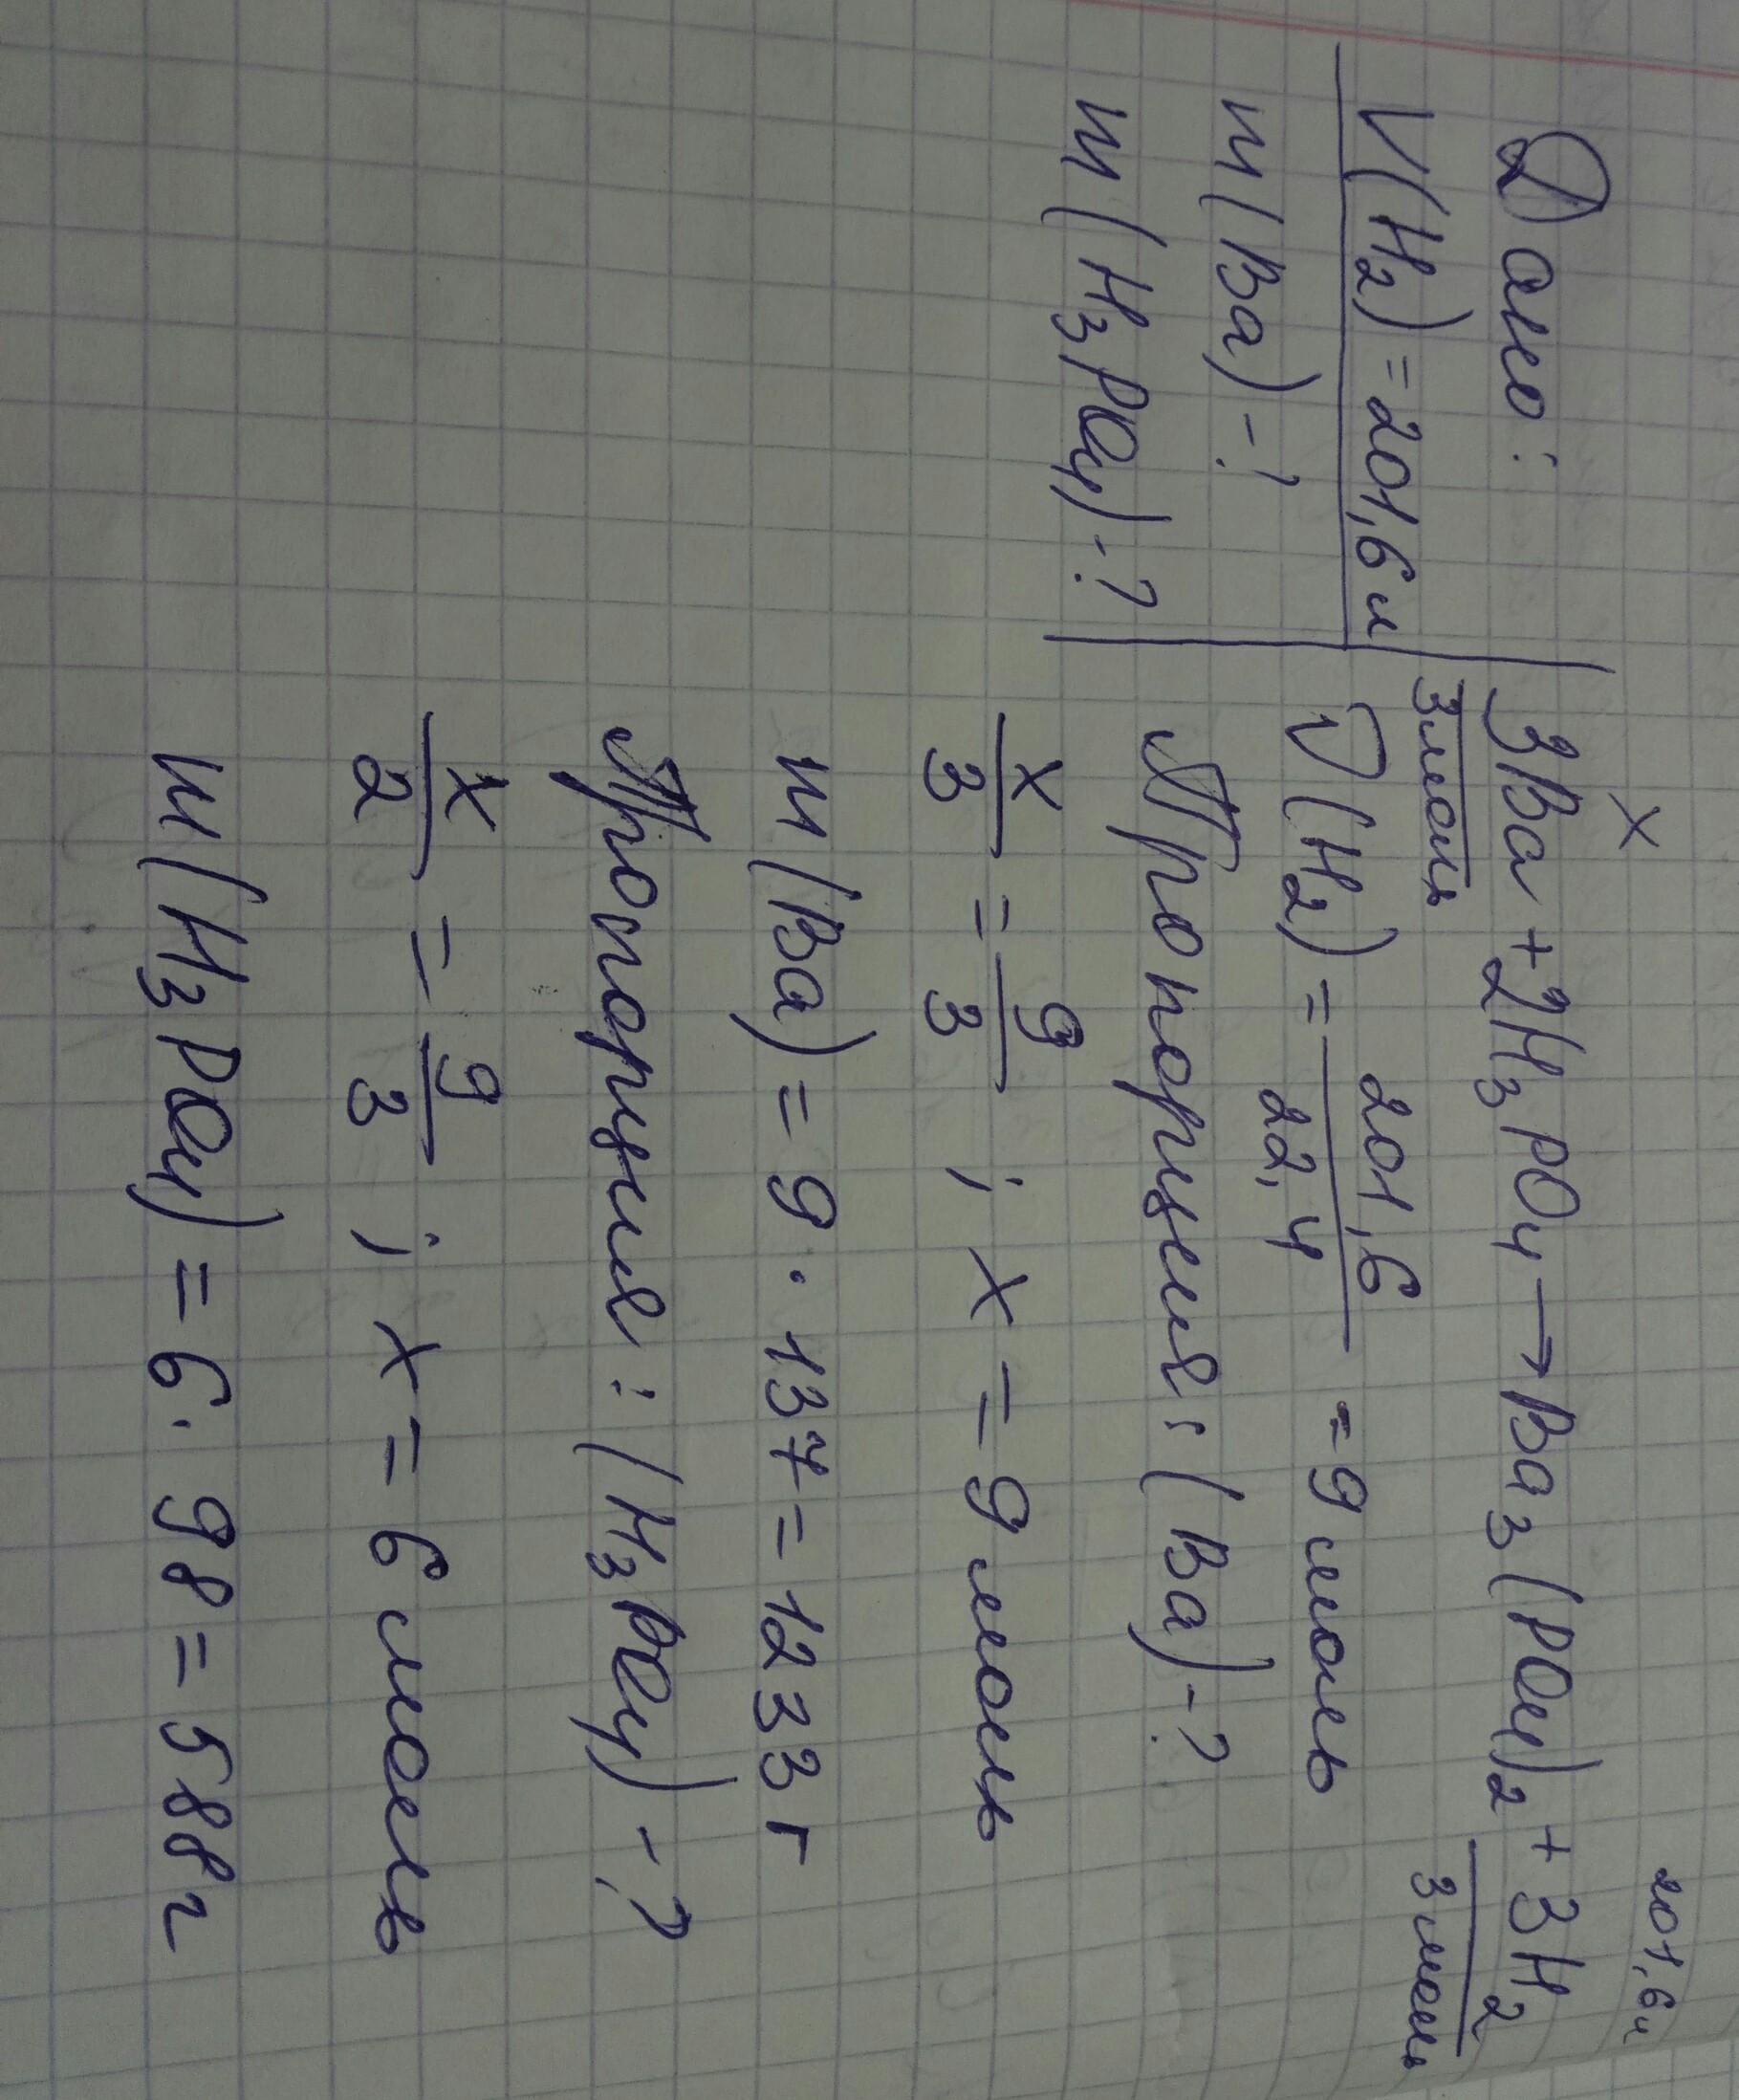 Дано:
V(H₂) = 201,6 л
m(Ba) - ?
m(H₃PO₄) - ?
x 201,6 л
3Ba + 2H₃PO₄ → Ba₃(PO₄)₂ + 3H₂
3 моль 3 моль
ν(H₂) = 201,6 / 22,4 = 9 моль
Пропорция: (Ba) - ?
x/3 = 9/3 ; x = 9 моль
m(Ba) = 9 · 137 = 1233 г
Пропорция: (H₃PO₄) - ?
x/2 = 9/3 ; x = 6 моль
m(H₃PO₄) = 6 · 98 = 588 г